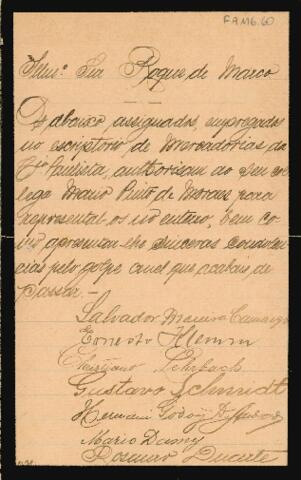 FAM6.60
Illmo. Snr. Roque de Marco
Os abaixo assignados, empregados
no escriptorio de Mercadorias da
Cia Paulista, authorisam ao seu col-
lega Mario Pinto de Moraes para
represental-os no enterro, bem co-
mo apresentar-lhe sinceras condolen-
cias pelo golpe cruel que acabais de
passar.—
Salvador Camargo
Ernesto Klemm
Christiano Lehrbach
Gustavo Schmidt
Hermini Godoy
Mario Damy
Duarte